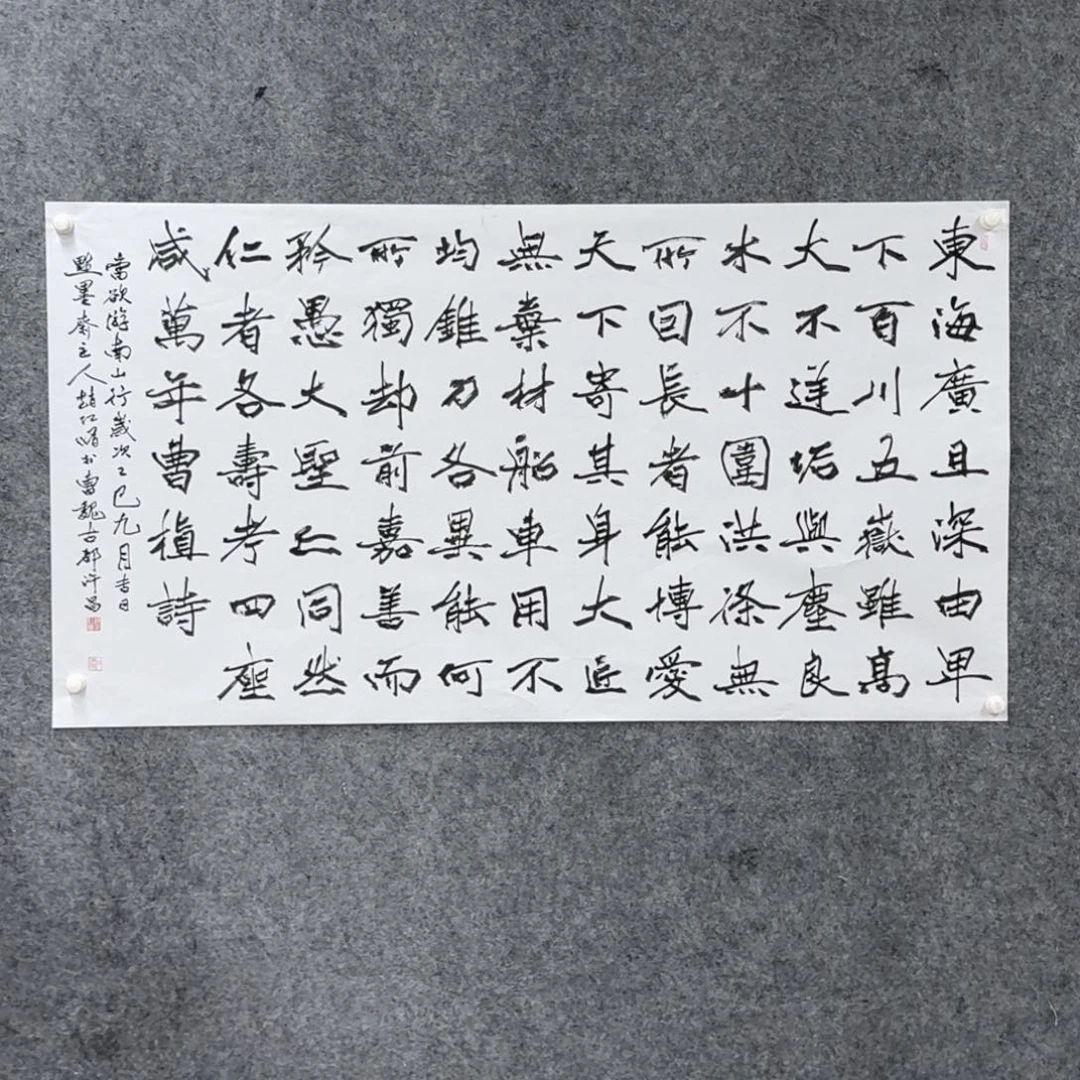 東海廣且深由卑
下百川五嶽雖高
大不逆垢與塵良
木不十圍洪條無
所因長者能博愛
天下寄其身大匠
無棄材船車用不
均錐刀各異能何
所獨却前嘉善而
矜愚大聖亦同然
仁者各壽考四座
咸萬年曹植詩
當欲游南山行歲次乙巳九月吉日
點墨齋主人趙书曹魏古都許昌